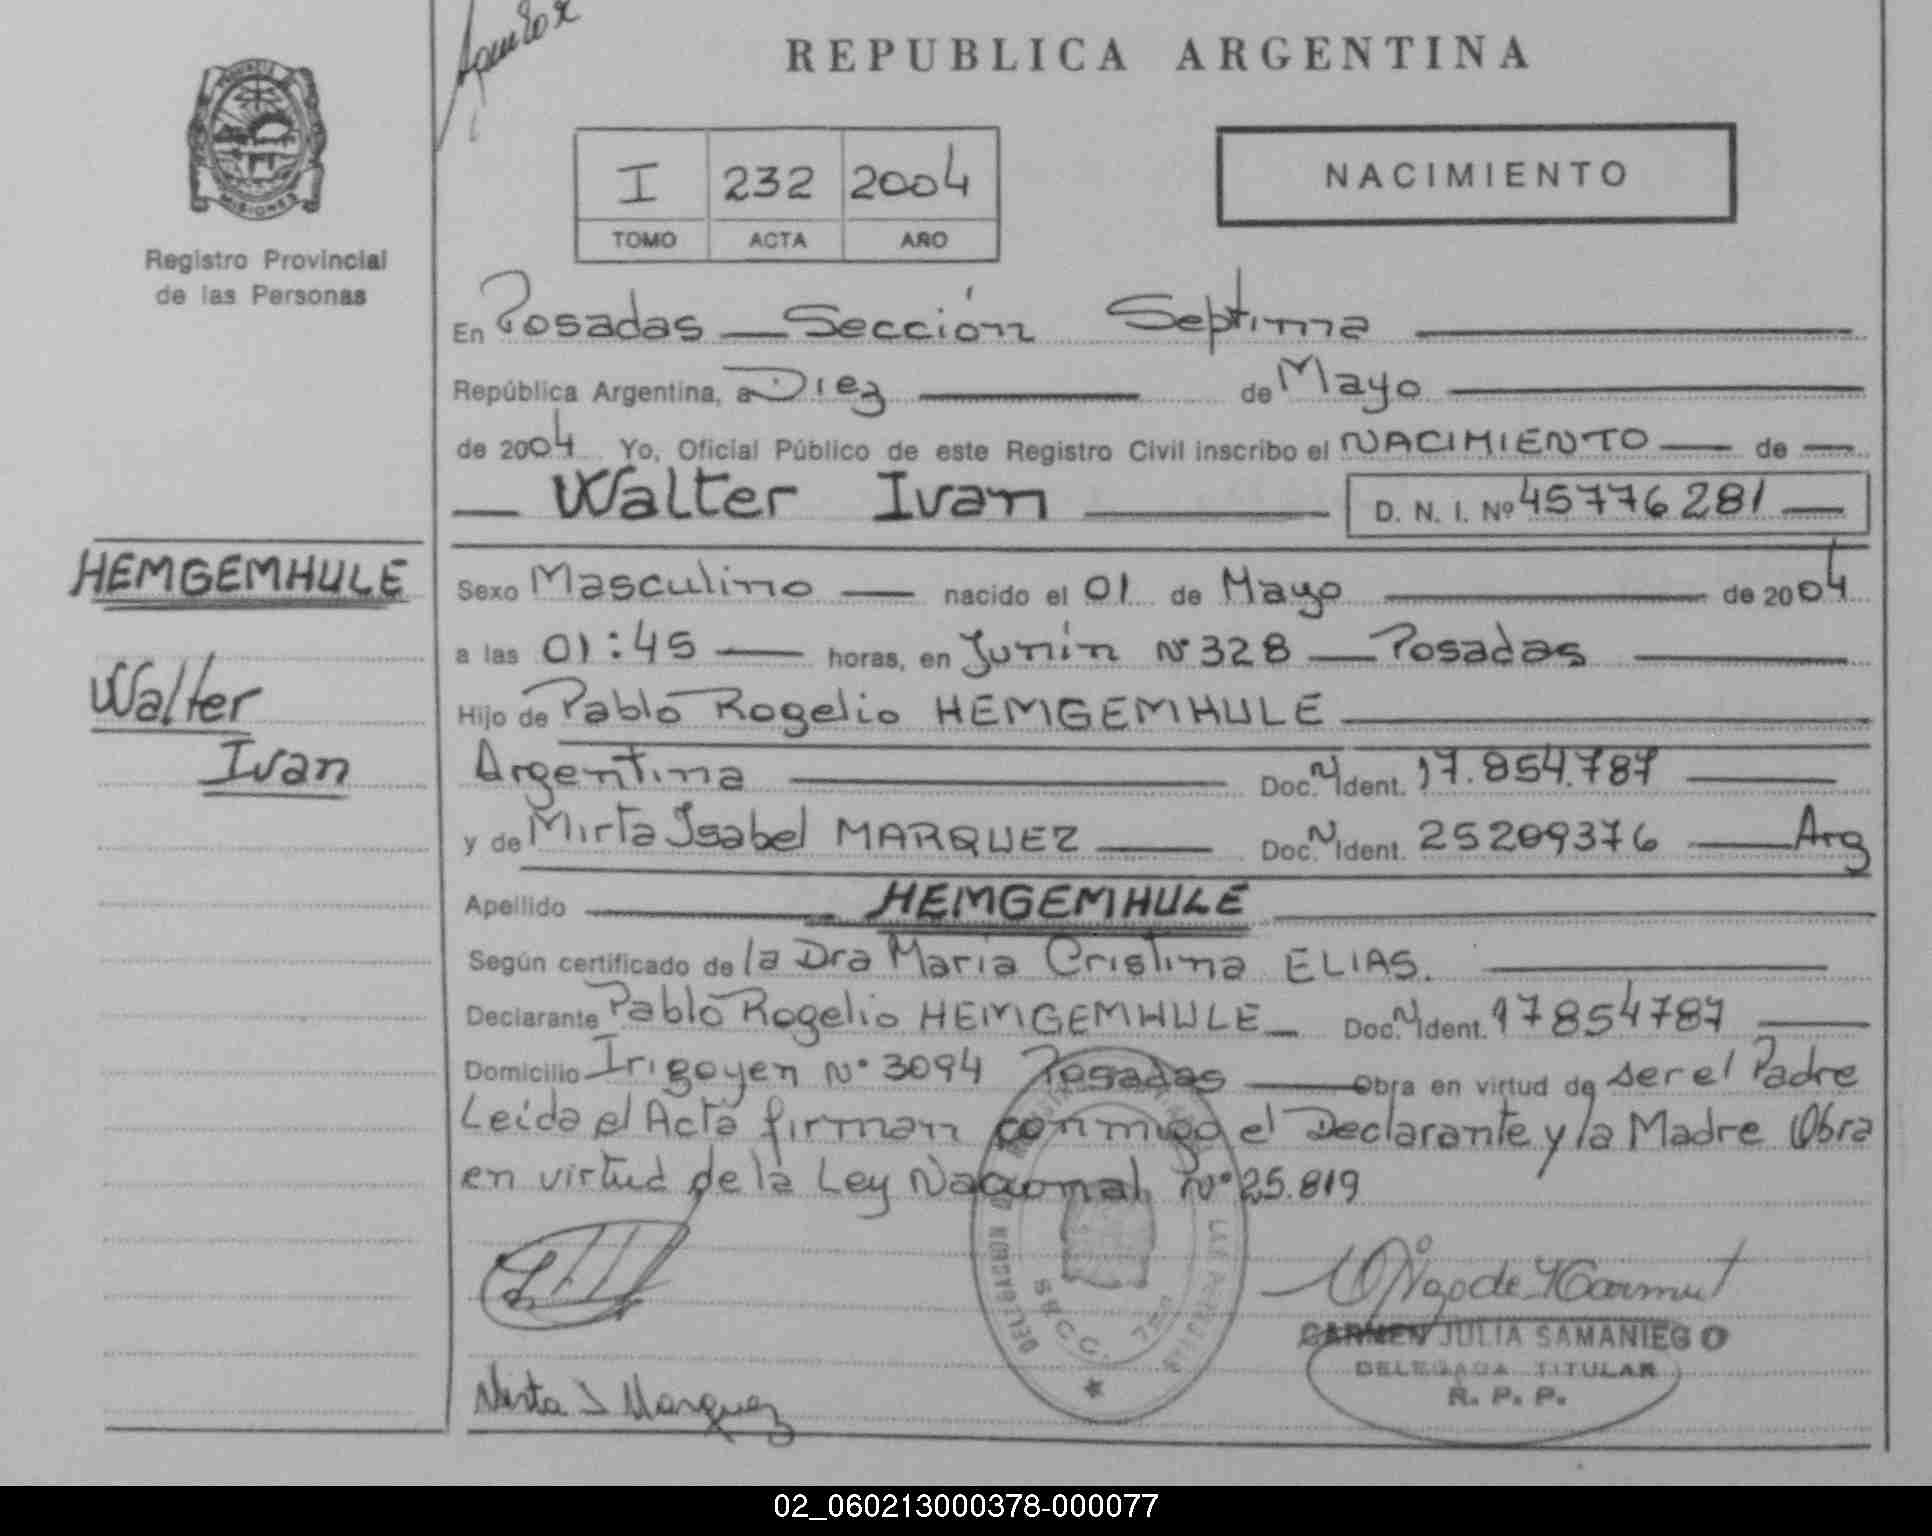 REPUBLICA ARGENTINA
PROVINCIA
MISIONES
Registro Provincial
de las Personas
I 232 2004
TOMO ACTA AÑO
NACIMIENTO
En Posadas — Sección Septima
República Argentina, a Diez de Mayo
de 2004 Yo, Oficial Público de este Registro Civil inscribo el NACIMIENTO — de —
— Walter Ivan — D. N. I. Nº 45776281 —
HEMGEMHULE
Walter
Ivan
Sexo Masculino — nacido el 01 de Mayo — de 2004
a las 01:45 — horas, en Junín Nº 328 — Posadas —
Hijo de Pablo Rogelio HEMGEMHULE —
Argentina — Doc. N Ident. 17.854.787 —
y de Mirta Isabel MARQUEZ — Doc. N Ident. 25209376 — Arg
Apellido — HEMGEMHULE —
Según certificado de la Dra Maria Cristina ELIAS. —
Declarante Pablo Rogelio HEMGEMHULE — Doc. N Ident. 17854787 —
Domicilio Irigoyen Nº 3094 Posadas — Obra en virtud de ser el Padre
Leida el Acta firman conmigo el Declarante y la Madre Obra
en virtud de la Ley Nacional Nº 25.819
DELEGACION
LAS PERSONAS
CARMEN JULIA SAMANIEGO
DELEGADA TITULAR
R. P. P.
Mirta I Marquez
02_060213000378-000077